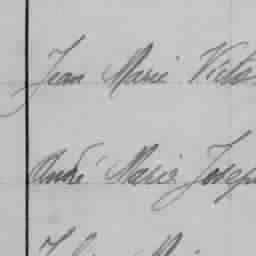 Jean Marie Victo
André Marie Josep